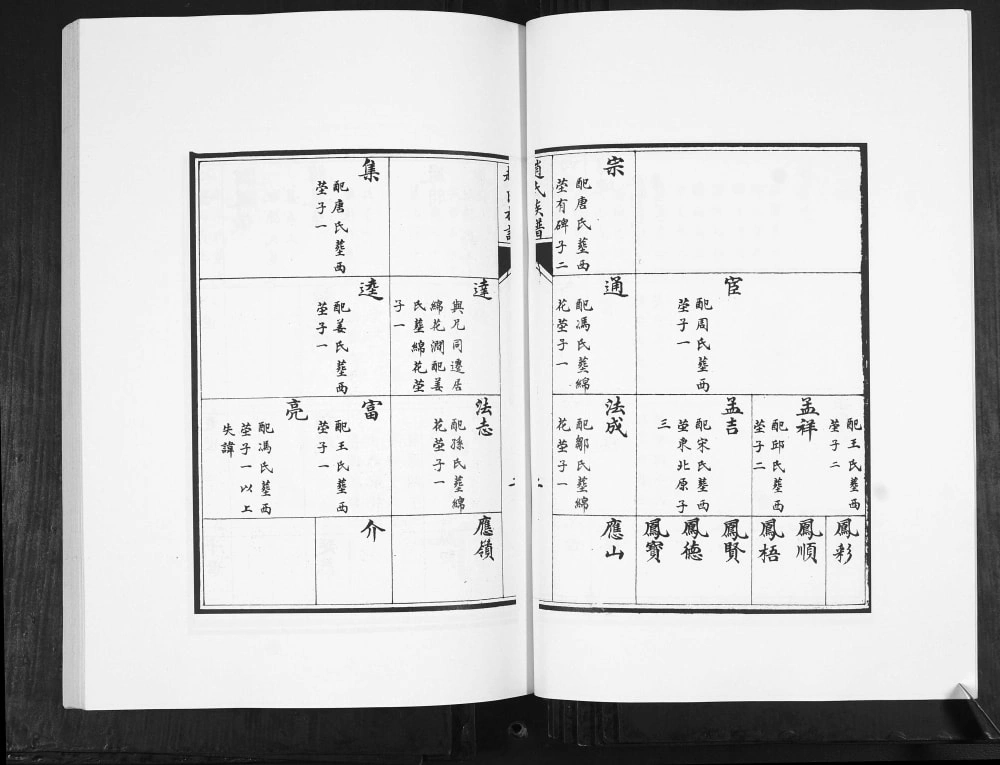 宗
配唐氏塟西
塋有碑子二
宦
配周氏塟西
塋子一
通
配馮氏塟綿
花塋子一
配王氏塟西
塋子二
孟祥
配邱氏塟西
塋子二
孟吉
配宋氏塟西
塋東北原子
三
法成
配鄒氏塟綿
花塋子一
鳳彩
鳳順
鳳梧
鳳賢
鳳德
鳳寶
應山
趙氏族譜
達
與兄同遷居
綿花澗配姜
氏塟綿花塋
子一
法志
配孫氏塟綿
花塋子一
應嶺
集
配唐氏塟西
塋子一
逵
配姜氏塟西
塋子一
富
配王氏塟西
塋子一
亮
配馮氏塟西
塋子一以上
失諱
介